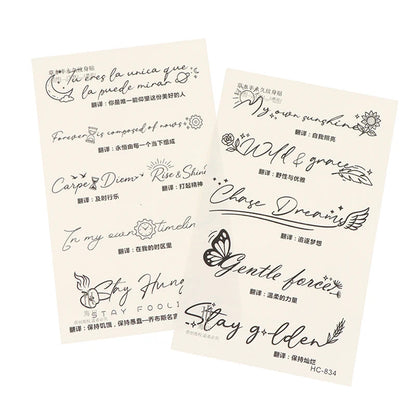 草本半永久纹身贴
Tú eres la unica que
la puede mirar
翻译：你是唯一能仰望这份美好的人
Forever is composed of nows
翻译：永恒由每一个当下组成
Carpe Diem
翻译：及时行乐
Rise & Shine
翻译：打起精神
In my own timeline
翻译：在我的时区里
Stay Hung
STAY FOOLI
翻译：保持饥饿，保持愚蠢—乔布斯名言
草本半永久纹身贴
My own sunshine
翻译：自我照亮
Wild & grace
翻译：野性与优雅
Chase Dreams
翻译：追逐梦想
Gentle force
翻译：温柔的力量
Stay golden
翻译：保持灿烂
HC-834